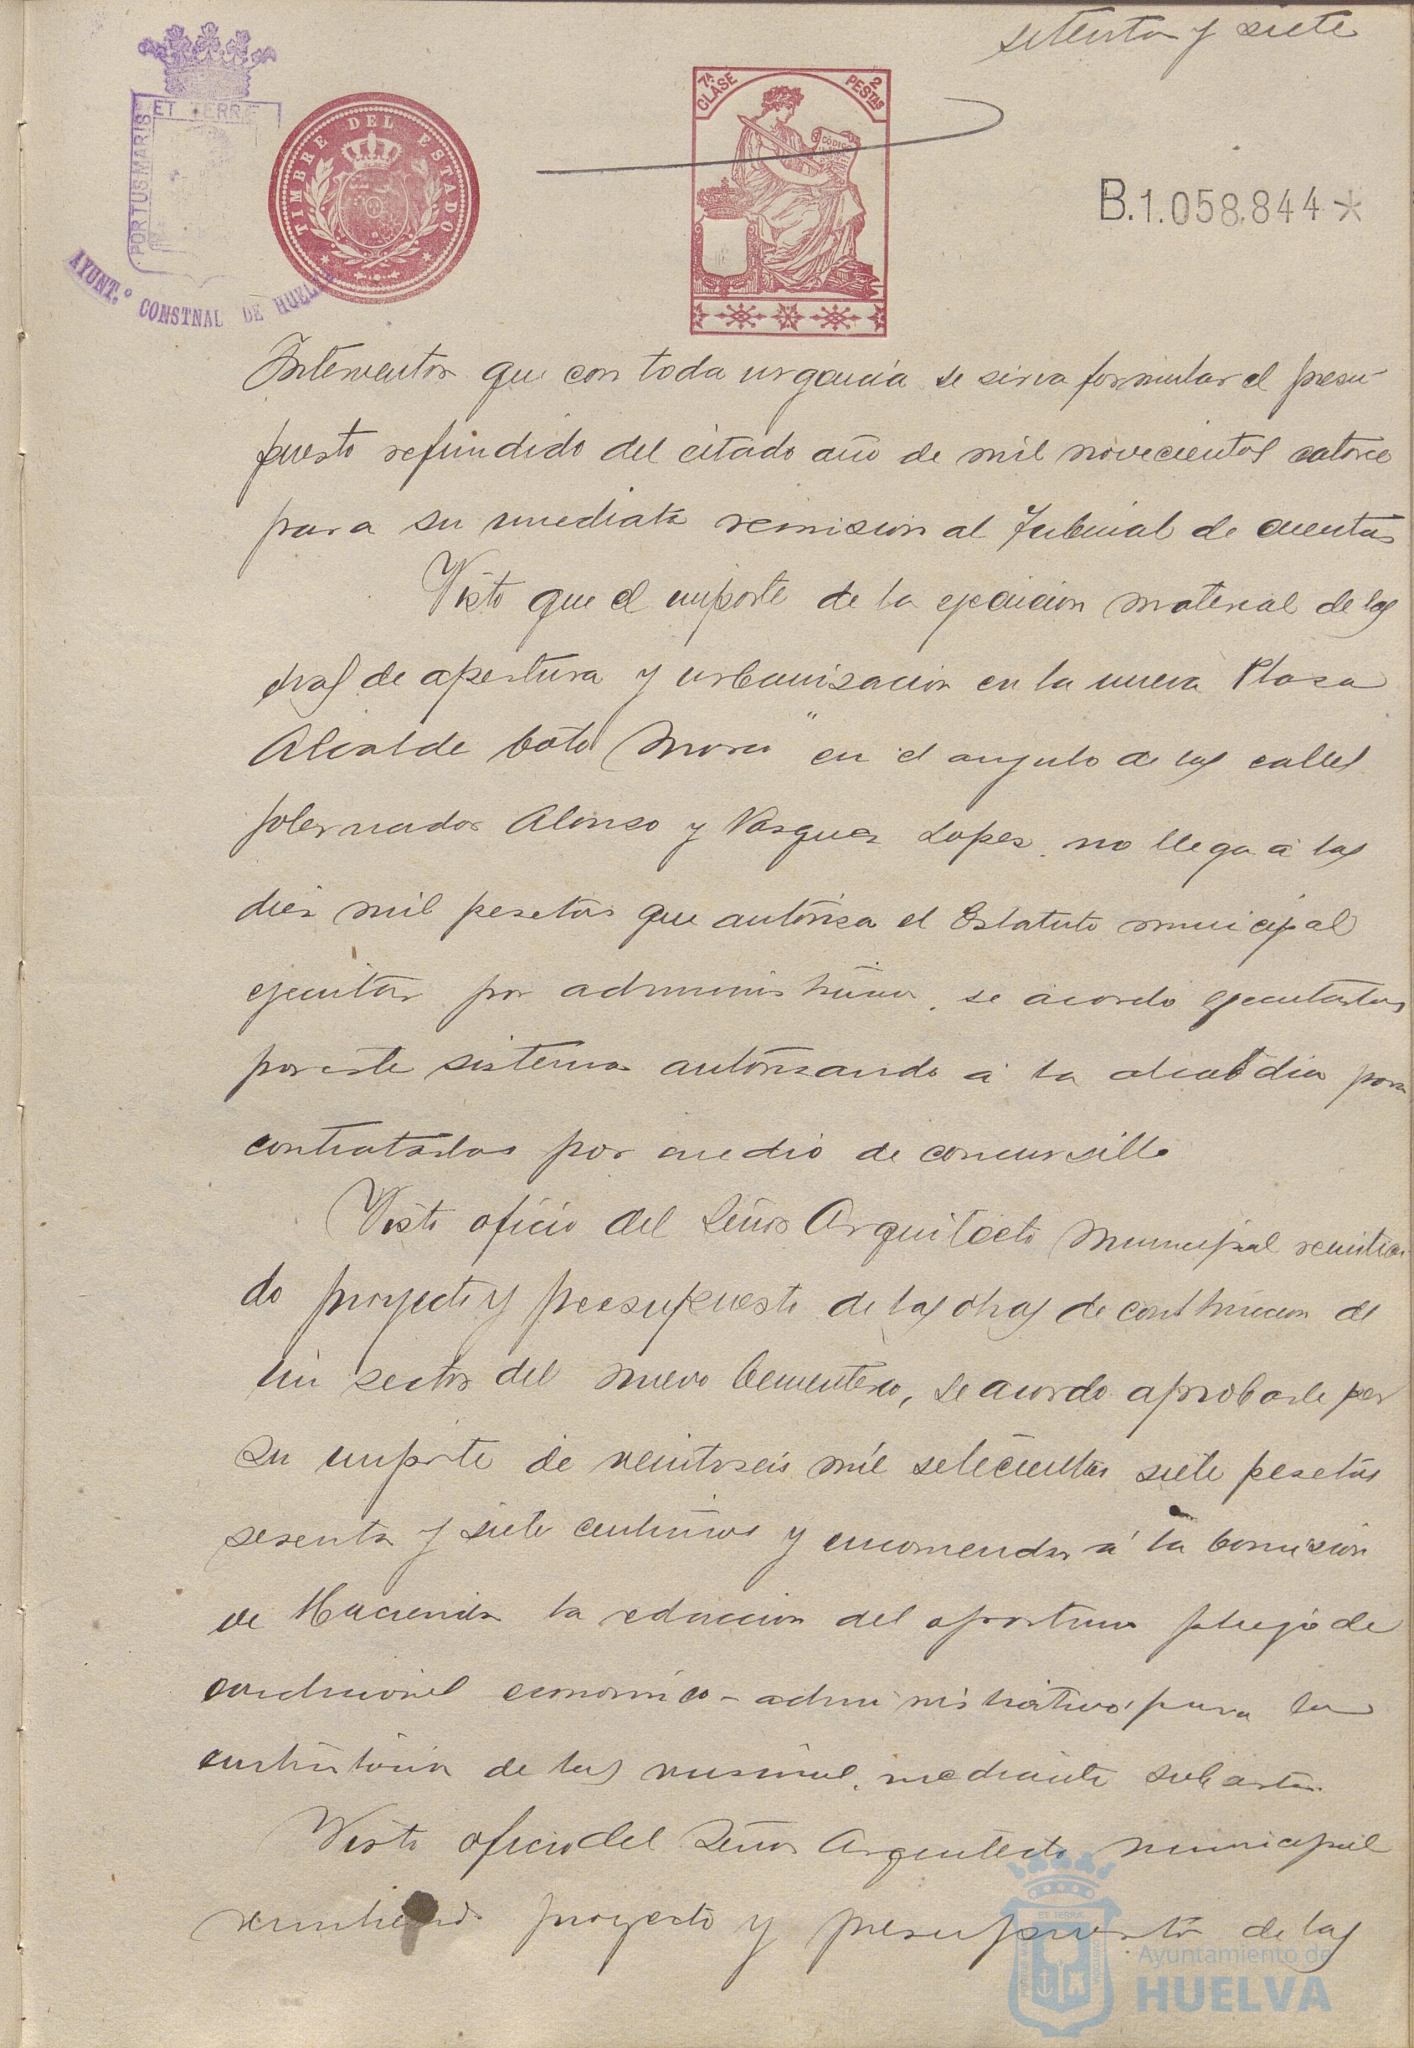 setenta y siete
7ª CLASE
2 PESTAS
ET TERRE
PORTUS MARIS
AYUNT.º CONSTNAL DE HUELVA
TIMBRE DEL ESTADO
B.1.058.844*
Interventor que con toda urgencia se sirva formular el presu-
puesto refundido del citado año de mil novecientos catorce
para su inmediata remision al Tribunal de cuentas
Visto que el importe de la ejecucion material de las
obras de apertura y urbanizacion en la nueva Plaza
Alcalde Coto Mora" en el angulo de las calles
Gobernador Alonso y Vazquez Lopez, no llega á las
diez mil pesetas que autoriza el Estatuto municipal
ejecutar por administración, se acordó ejecutarlas
por este sistema autorizando á la alcaldia para
contratarlas por medio de concursillo
Visto oficio del Señor Arquitecto Municipal remitien
do proyecto y presupuesto de las obras de construccion de
un sector del nuevo Cementerio, se acordo aprobarle por
su importe de veintiseis mil setecientas siete pesetas
sesenta y siete centimos y encomendar á la Comision
de Hacienda la redaccion del oportuno pliego de
condiciones economico-administrativo para la
de las mismas, mediante subasta.
Visto oficio del Señor Arquitecto municipal
remitiendo proyecto y presupuesto de las
Ayuntamiento de
HUELVA